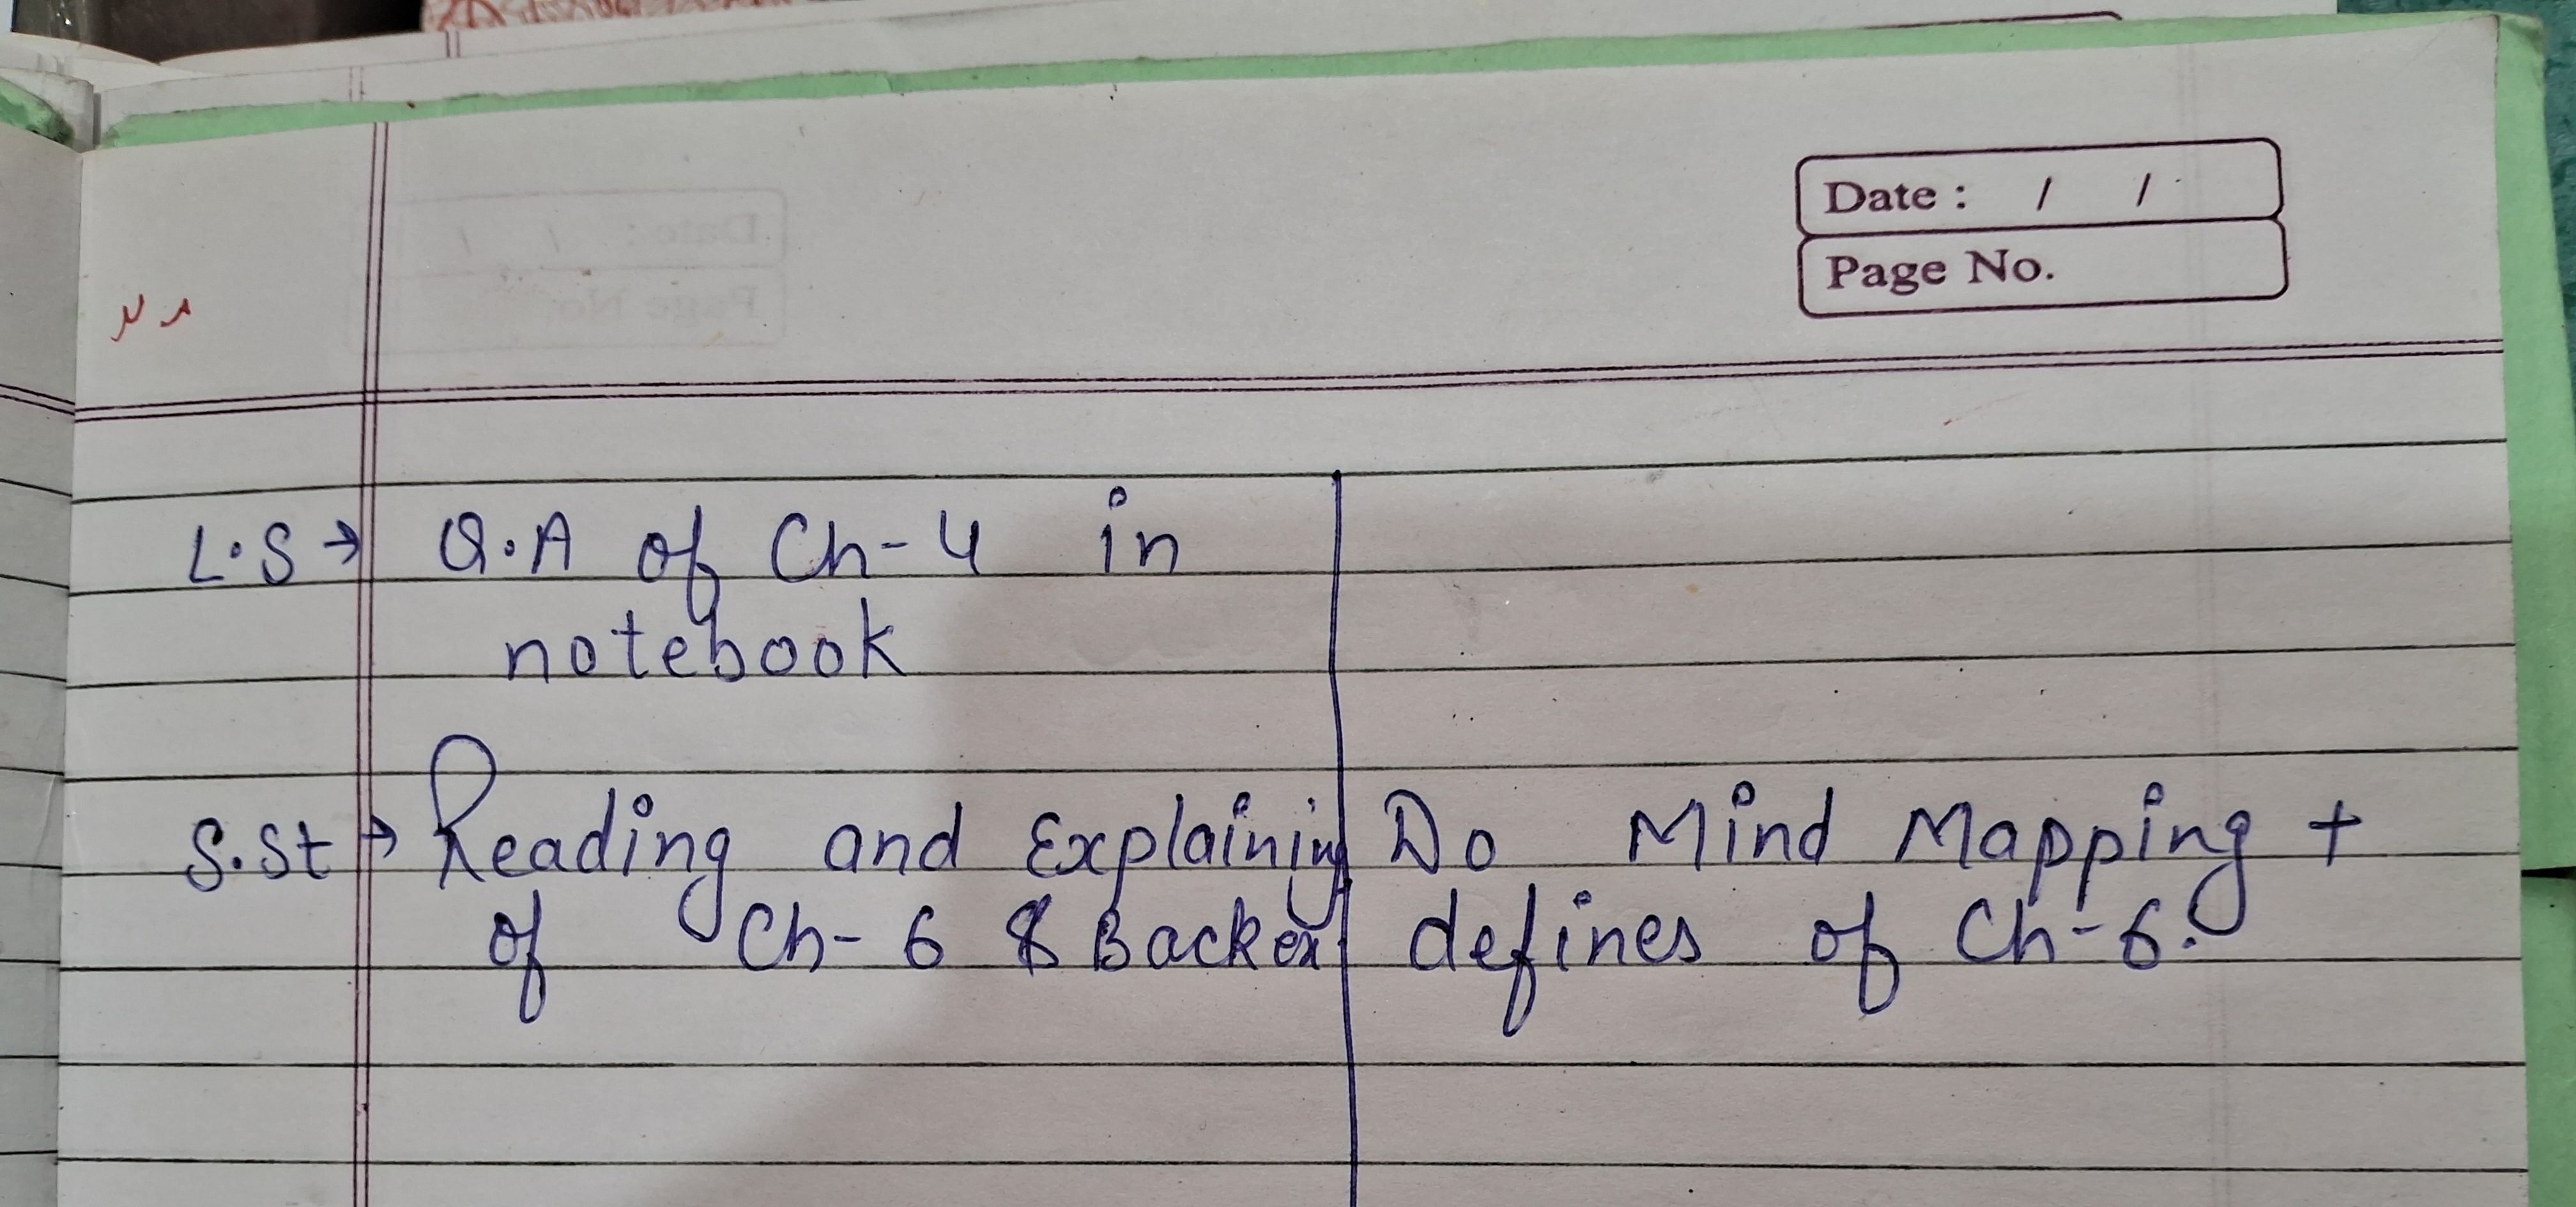 Date : / /
Page No.
L.S → Q.A of Ch-4 in
notebook
S.St → Reading and Explaining Do Mind Mapping +
of Ch-6 & Back ex defines of Ch-6.